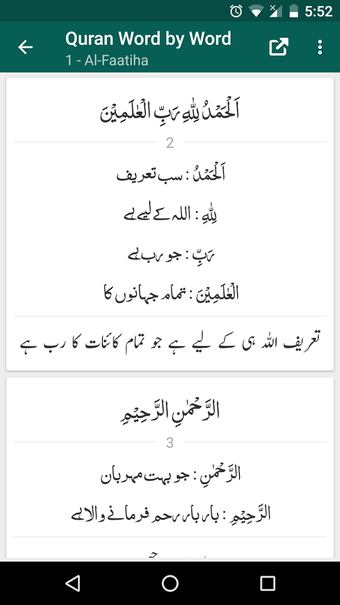 5:52
Quran Word by Word
1 - Al-Faatiha
اَلْحَمْدُ لِلّٰهِ رَبِّ الْعٰلَمِیْنَ
2
اَلْحَمْدُ : سب تعریف
لِلّٰهِ : اللہ کے لیے ہے
رَبِّ : جو رب ہے
الْعٰلَمِیْنَ : تمام جہانوں کا
تعریف اللہ ہی کے لیے ہے جو تمام کائنات کا رب ہے
الرَّحْمٰنِ الرَّحِیْمِ
3
الرَّحْمٰنِ : جو بہت مہربان
الرَّحِیْمِ : بار بار رحم فرمانے والا ہے